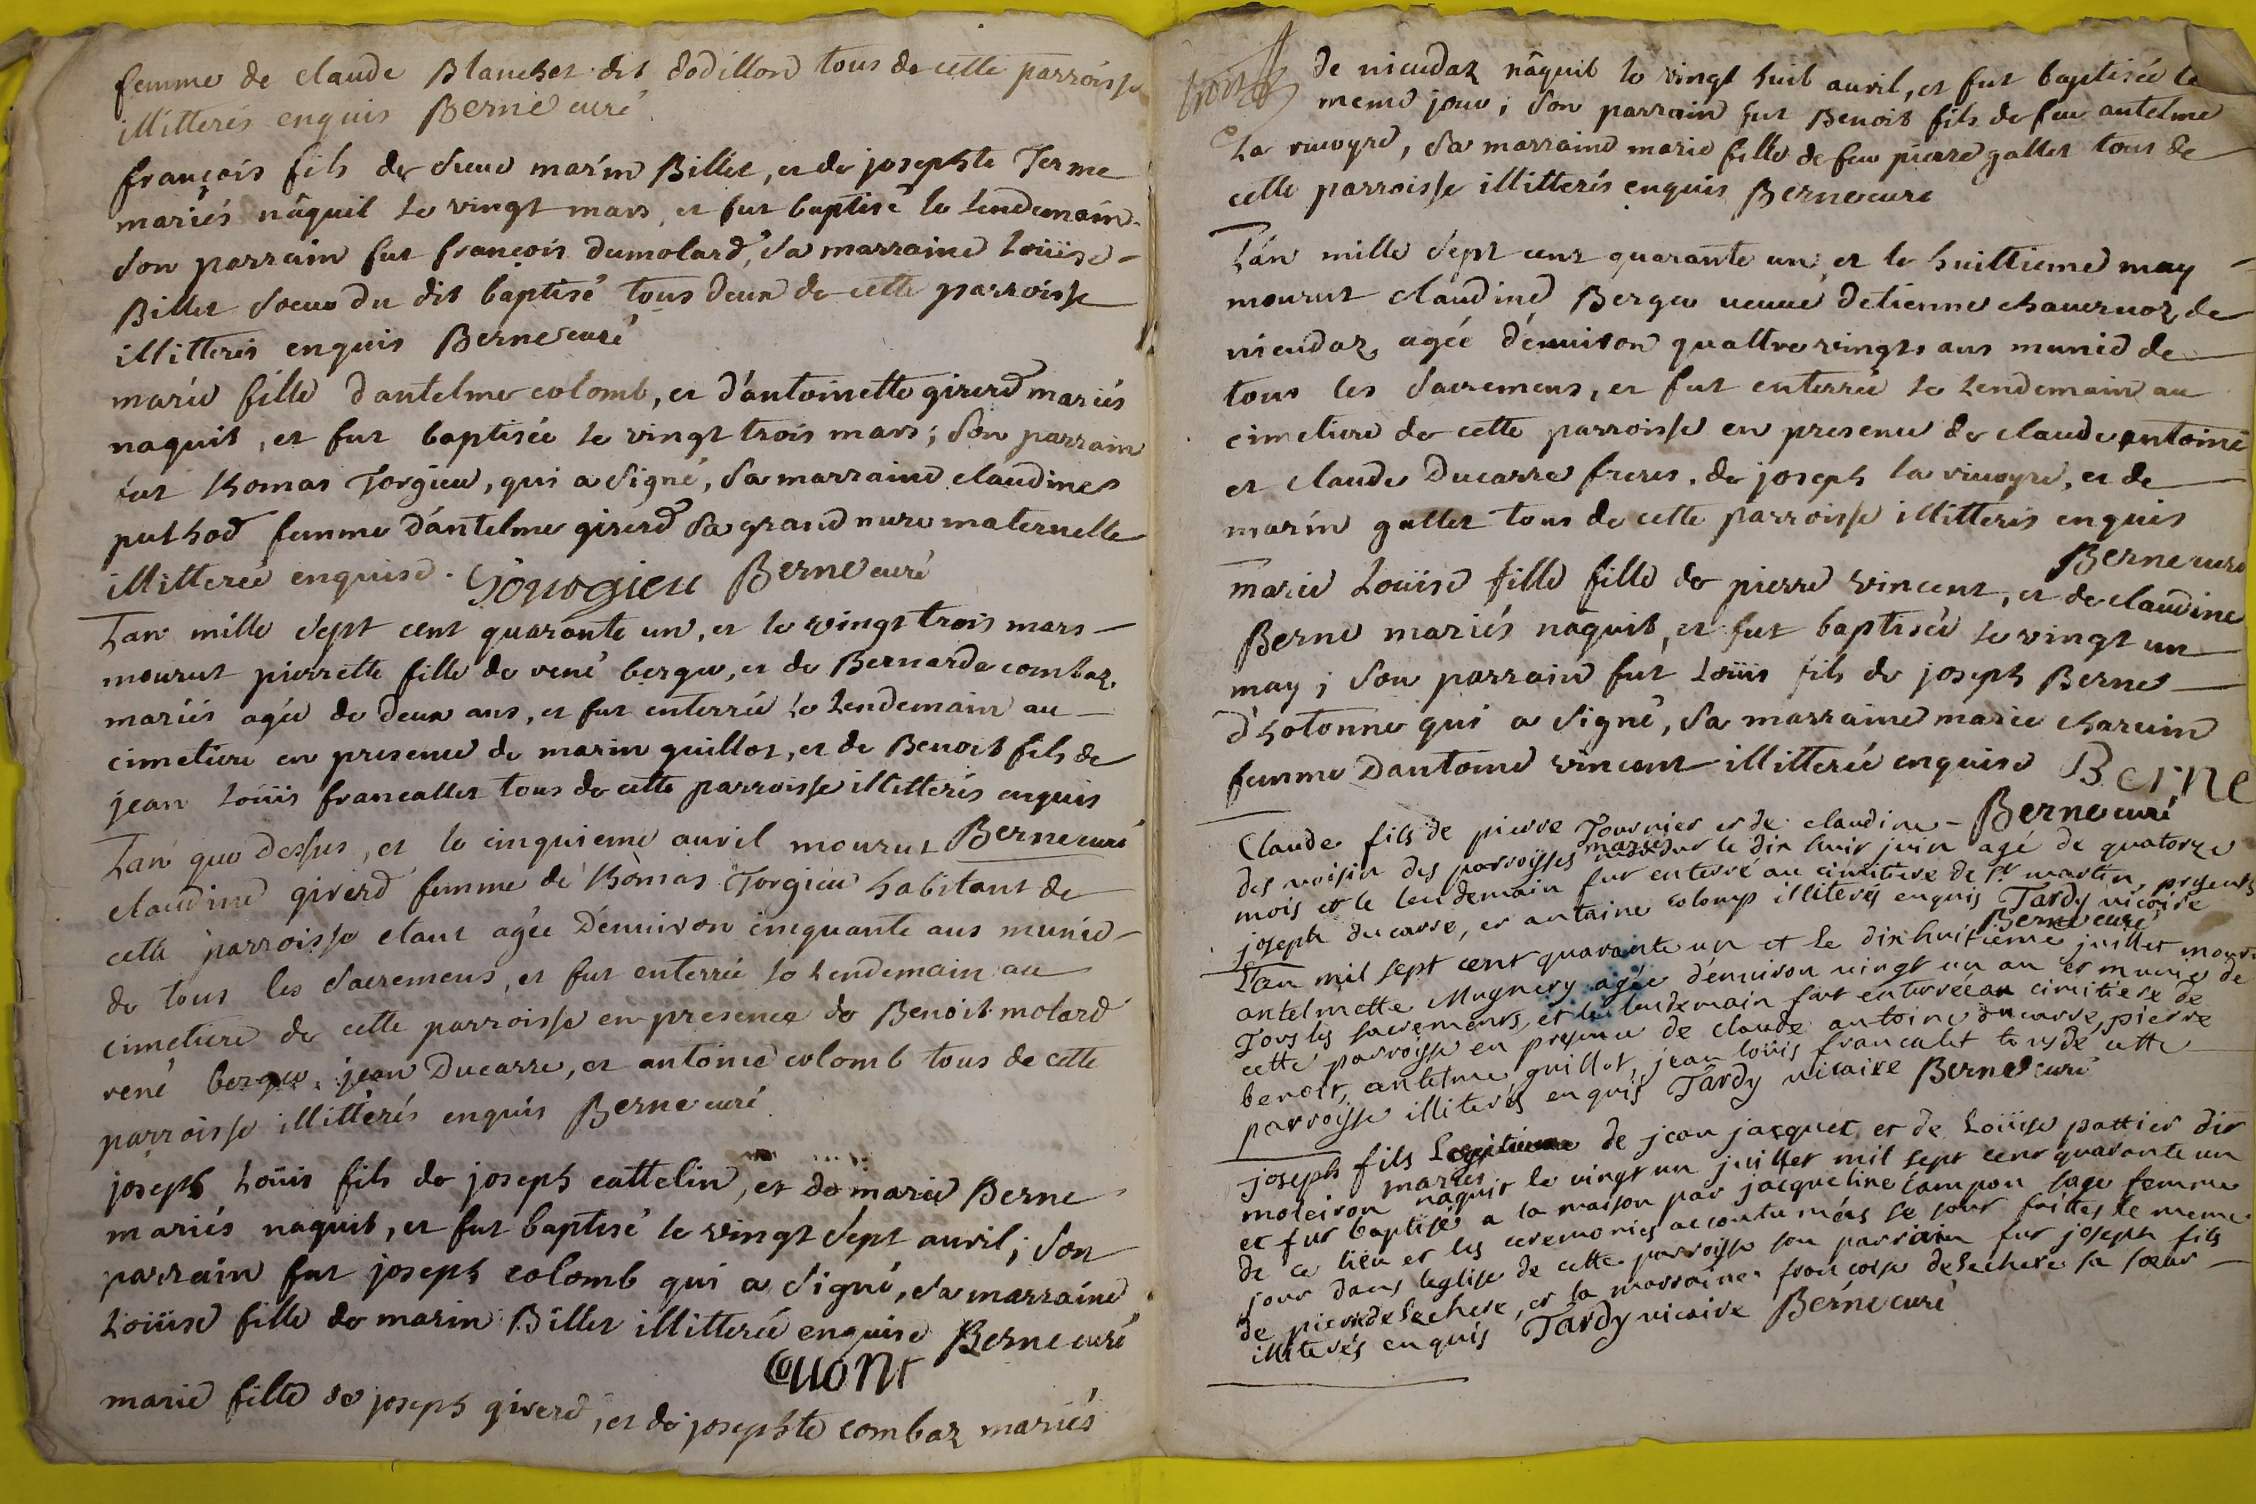 femme de claude Blanchet dit dodillon tous de cette parroisse
illitterés enquis Berne curé
françois fils de sieur marin Billet, et de josephte Terme
mariés nâquit le vingt mars, et fut baptisé le lendemain
son parrain fut françois dumolard, sa marraine Loüise
Billet soeur du dit baptisé tous deux de cette parroisse
illitterés enquis Berne curé
marie fille d'antelme colomb, et d'antoinette girerd mariés
naquit, et fut baptisée le vingt trois mars; son parrain
fut thomas Torgieu, qui a signé, sa marraine claudine
puthod femme d'antelme girerd sa grand mere maternelle
illitterée enquise. Berne curé
L'an mille sept cent quarante un, et le vingt trois mars
mourut pierrette fille de rené berger, et de Bernarde combaz
mariés agée de deux ans, et fut enterrée le lendemain au
cimetiere en presence de marin guillot, et de Benoit fils de
jean Loüis francallet tous de cette parroisse illitterés enquis
Berne curé
L'an que dessus, et le cinquieme auril mourut
claudine girerd femme de thomas Torgieu habitant de
cette parroisse etant agée d'enuiron cinquante ans munie
de tous les sacremens, et fut enterrée le lendemain au
cimetiere de cette parroisse en presence de Benoit molard
rené berger, jean Ducarre, et antoine colomb tous de cette
parroisse illitterés enquis Berne curé
joseph Loüis fils de joseph cattelin, et de marie Berne
mariés naquit, et fut baptisé le vingt sept auril; son
parrain fut joseph colomb qui a signé, sa marraine
Loüise fille de marin Billet illitterée enquise Berne curé
marie fille de joseph girerd, et de josephte combaz mariés
de nieudaz nâquit le vingt huit auril, et fut baptisée le
meme jour; son parrain fut Benoit fils de feu antelme
La riuoyre, sa marraine marie fille de feu pierre gallet tous de
cette parroisse illitterés enquis Berne curé
L'an mille sept cent quarante un, et le huittieme may
mourut claudine Berger ueuue d'etienne chauernoz de
nieudaz agée d'enuiron quattre vingts ans munie de
tous les sacremens, et fut enterrée le lendemain au
cimetiere de cette parroisse en presence de claude antoine
et claude Ducarre freres, de joseph la riuoyre, et de
marin gallet tous de cette parroisse illitterés enquis
Berne curé
marie Loüise fille fille de pierre vincent, et de claudine
Berne mariés naquit, et fut baptisée le vingt un
may; son parrain fut Loüis fils de joseph Berne
d'hotonne qui a signé, sa marraine marie charuin
femme d'antoine vincent illitterée enquise Berne
Berne curé
Claude fils de pierre Tournier et de claudine
des uoisin des parroisses mariés mourut le dix huit juin agé de quatorze
mois et le lendemain fut enterré au cimitiere de St martin, presents
joseph ducarre, et antoine colomp illiterés enquis Tardy uicaire
Berne curé
L'an mil sept cent quarante un et le dix huitieme juillet mourut
antelmette Mugnery agée d'enuiron uingt un an et munie de
Tous les sacrements, et le lendemain fut enterrée au cimitiere de
cette parroisse en presence de claude antoine ducarre, pierre
benoit, antelme guillot, jean loüis francalet tous de cette
parroisse illiterés enquis Tardy uicaire Berne curé
joseph fils Legitime de jean jacquet et de Loüise pattier dit
moleiron mariés naquit le vingt un juillet mil sept cent quarante un
et fut baptisé a la maison par jacqueline campon sage femme
de ce lieu et les ceremonies accoutumées se sont faittes le meme
jour dans leglise de cette parroisse son parrain fut joseph fils
de pierre delechere, et la marraine francoise delechere sa soeur
illiterés enquis Tardy uicaire Berne curé